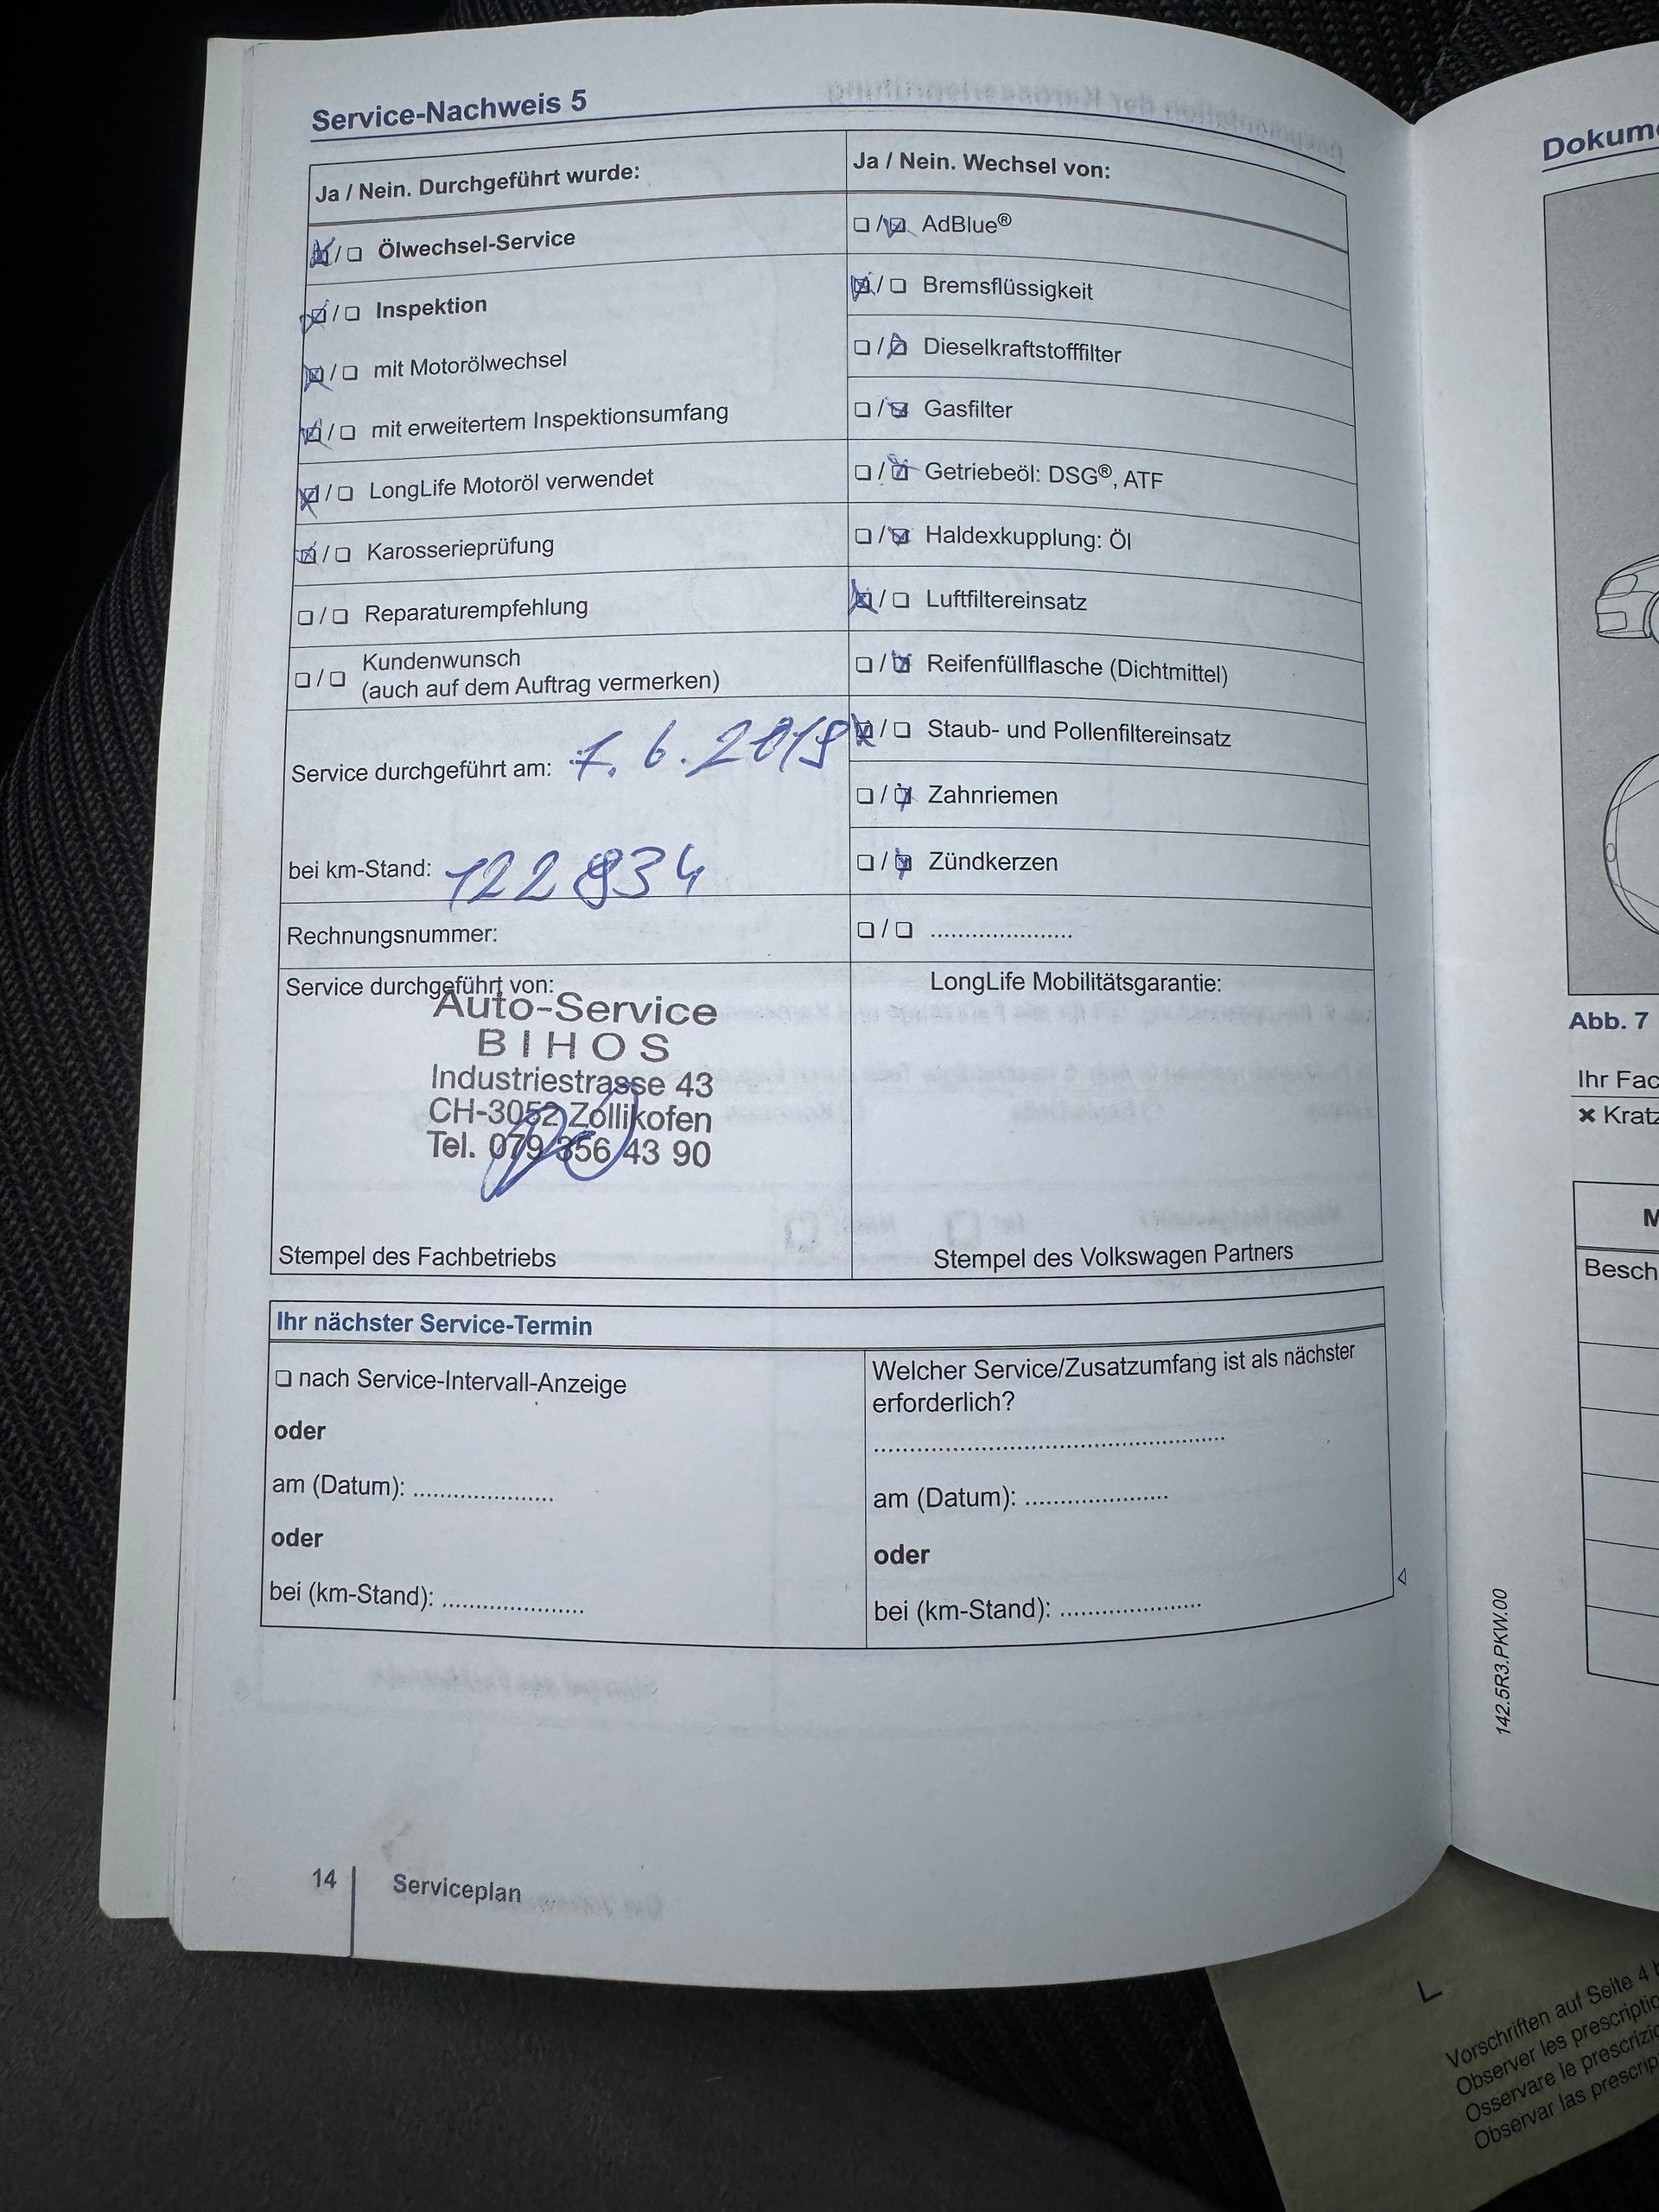 Service-Nachweis 5
Ja / Nein. Durchgeführt wurde:
☒/❏ Ölwechsel-Service
☒/❏ Inspektion
☒/❏ mit Motorölwechsel
☒/❏ mit erweitertem Inspektionsumfang
☒/❏ LongLife Motoröl verwendet
☒/❏ Karosserieprüfung
❏/❏ Reparaturempfehlung
❏/❏ Kundenwunsch
(auch auf dem Auftrag vermerken)
Service durchgeführt am: 7. 6. 2019
bei km-Stand: 122 934
Rechnungsnummer:
Service durchgeführt von:
Auto-Service
BIHOS
Industriestrasse 43
CH-3052 Zollikofen
Tel. 079 356 43 90
Stempel des Fachbetriebs
Ja / Nein. Wechsel von:
❏/☒ AdBlue®
☒/❏ Bremsflüssigkeit
❏/☒ Dieselkraftstofffilter
❏/☒ Gasfilter
❏/☒ Getriebeöl: DSG®, ATF
❏/☒ Haldexkupplung: Öl
☒/❏ Luftfiltereinsatz
❏/☒ Reifenfüllflasche (Dichtmittel)
☒/❏ Staub- und Pollenfiltereinsatz
❏/☒ Zahnriemen
❏/☒ Zündkerzen
❏/❏ .....................
LongLife Mobilitätsgarantie:
Stempel des Volkswagen Partners
Ihr nächster Service-Termin
❏ nach Service-Intervall-Anzeige
oder
am (Datum): .....................
oder
bei (km-Stand): .....................
Welcher Service/Zusatzumfang ist als nächster
erforderlich?
.....................................................
am (Datum): .....................
oder
bei (km-Stand): .....................
14 Serviceplan
142.5R3.PKW.00
Abb. 7
Ihr Fac
✖ Kratz
Besch
Vorschriften auf Seite 4
Observer les
Osservare le
Observar las